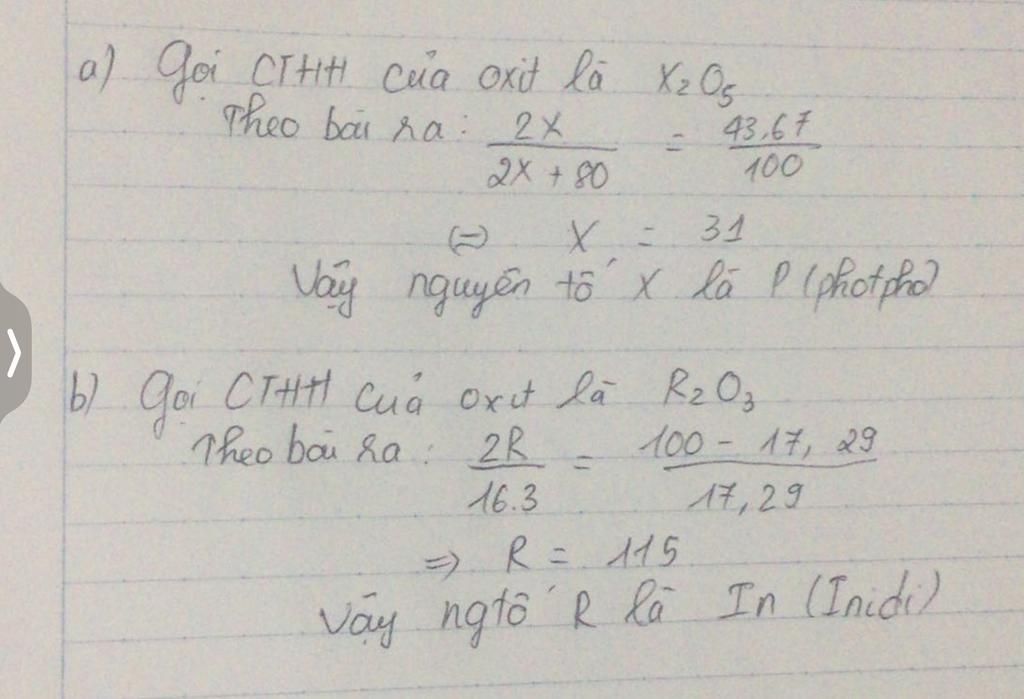 a) Gọi CTHH của oxit là X₂O₅
Theo bài ra: 2X / 2X + 80 = 43,67 / 100
(=) X = 31
Vậy nguyên tố X là P (photpho)
b) Gọi CTHH của oxit là R₂O₃
Theo bài ra: 2R / 16.3 = 100 - 17,29 / 17,29
=> R = 115
Vậy ngtố R là In (Inidi)